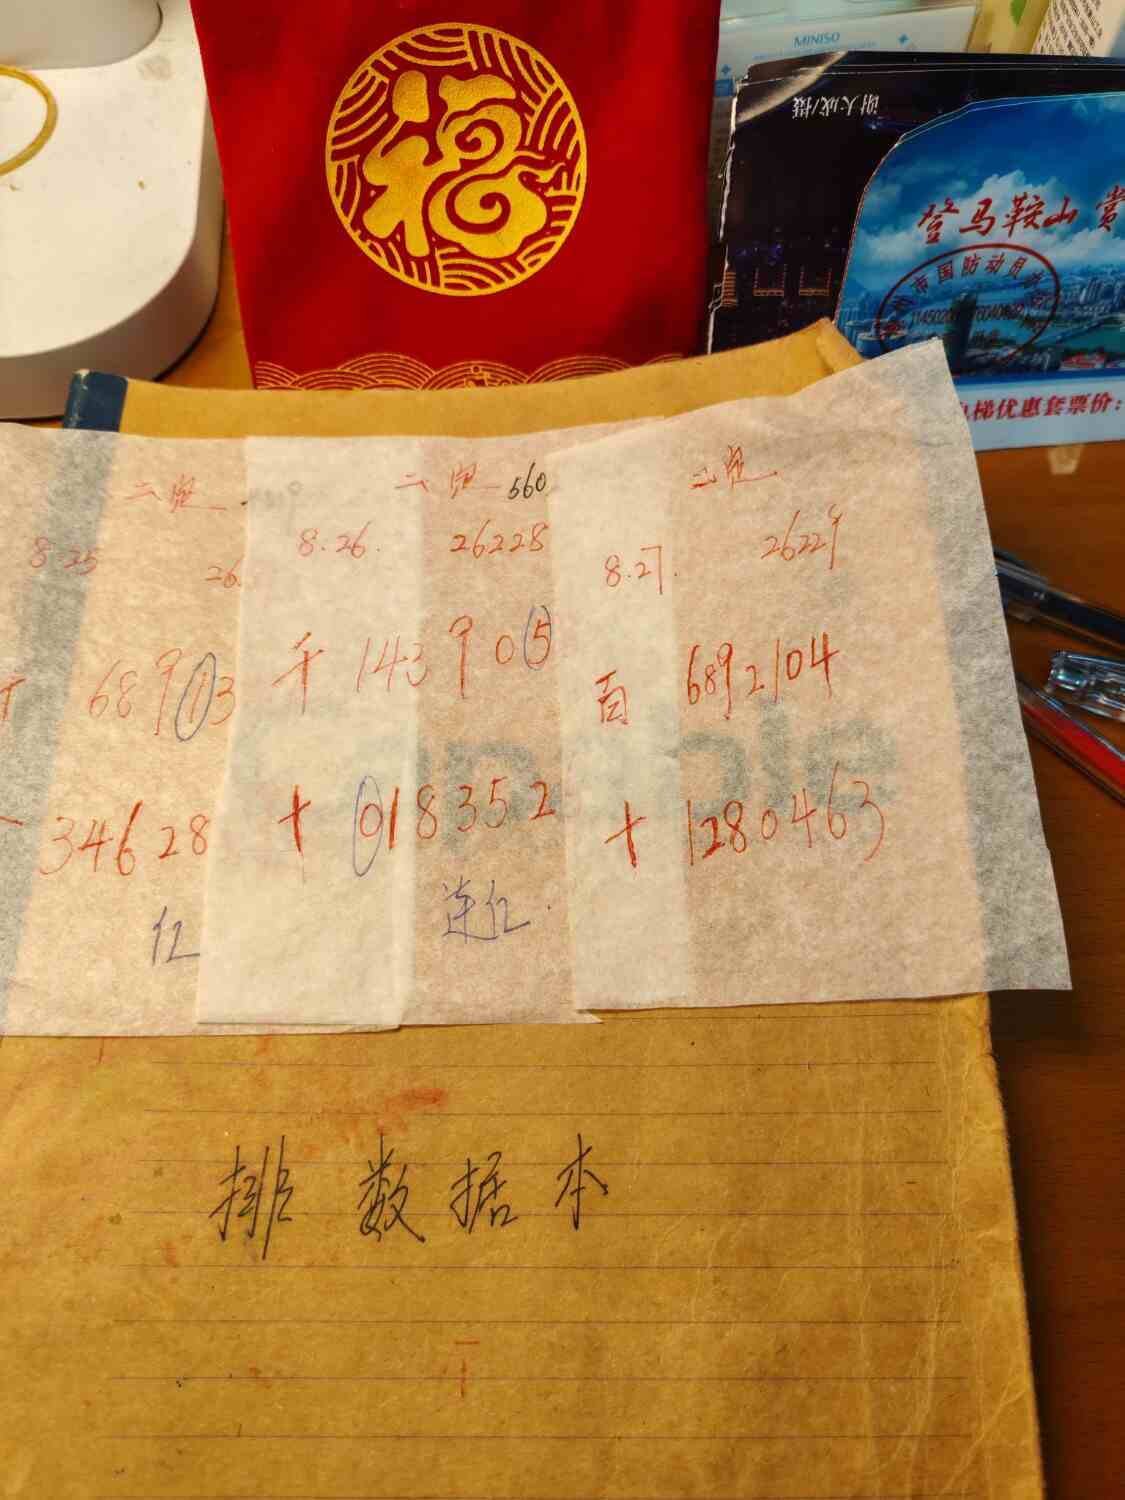 MINISO
谢大成/摄
福
登马鞍山 赏
市国防动员
电梯优惠套票价：
二定
8.25
26
68913
34628
红
二定 560
8.26. 26228
千 143905
十 018352
连红.
二定
8.27. 26229
百 6892104
十 1280463
排数据本